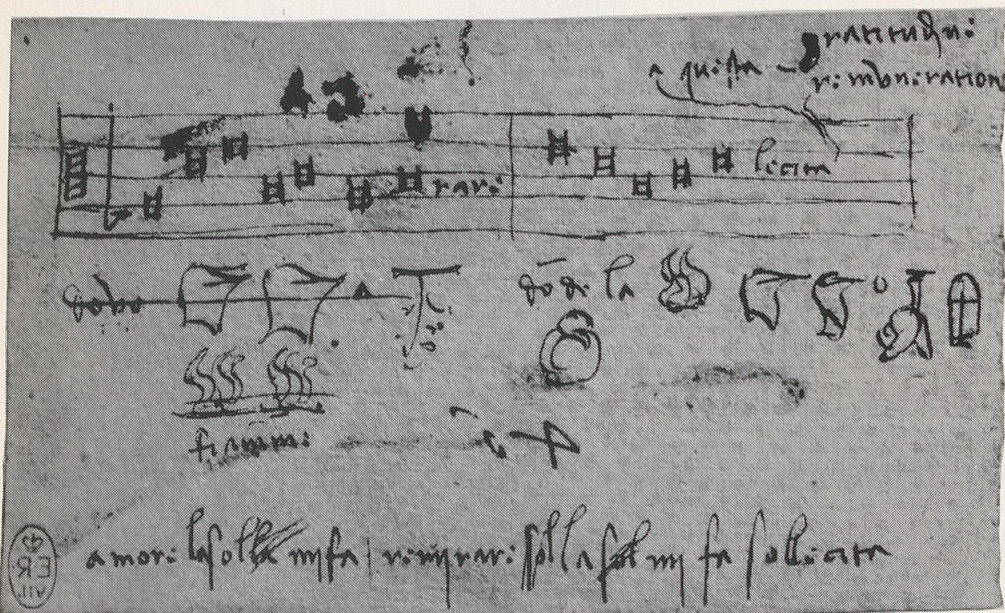 gratitudine
questa
rimuneration
rare lecita
dō de la
fiamme
amore la sol la mi fa | remirare sol la sol mi fa sollecita
ER
VII